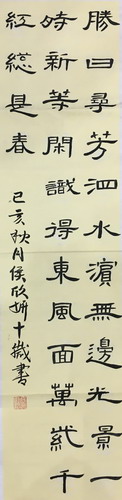 勝日尋芳泗水濱無邊光景一
時新等閑識得東風面萬紫千
紅總是春
己亥秋月侯欣妍十歲書